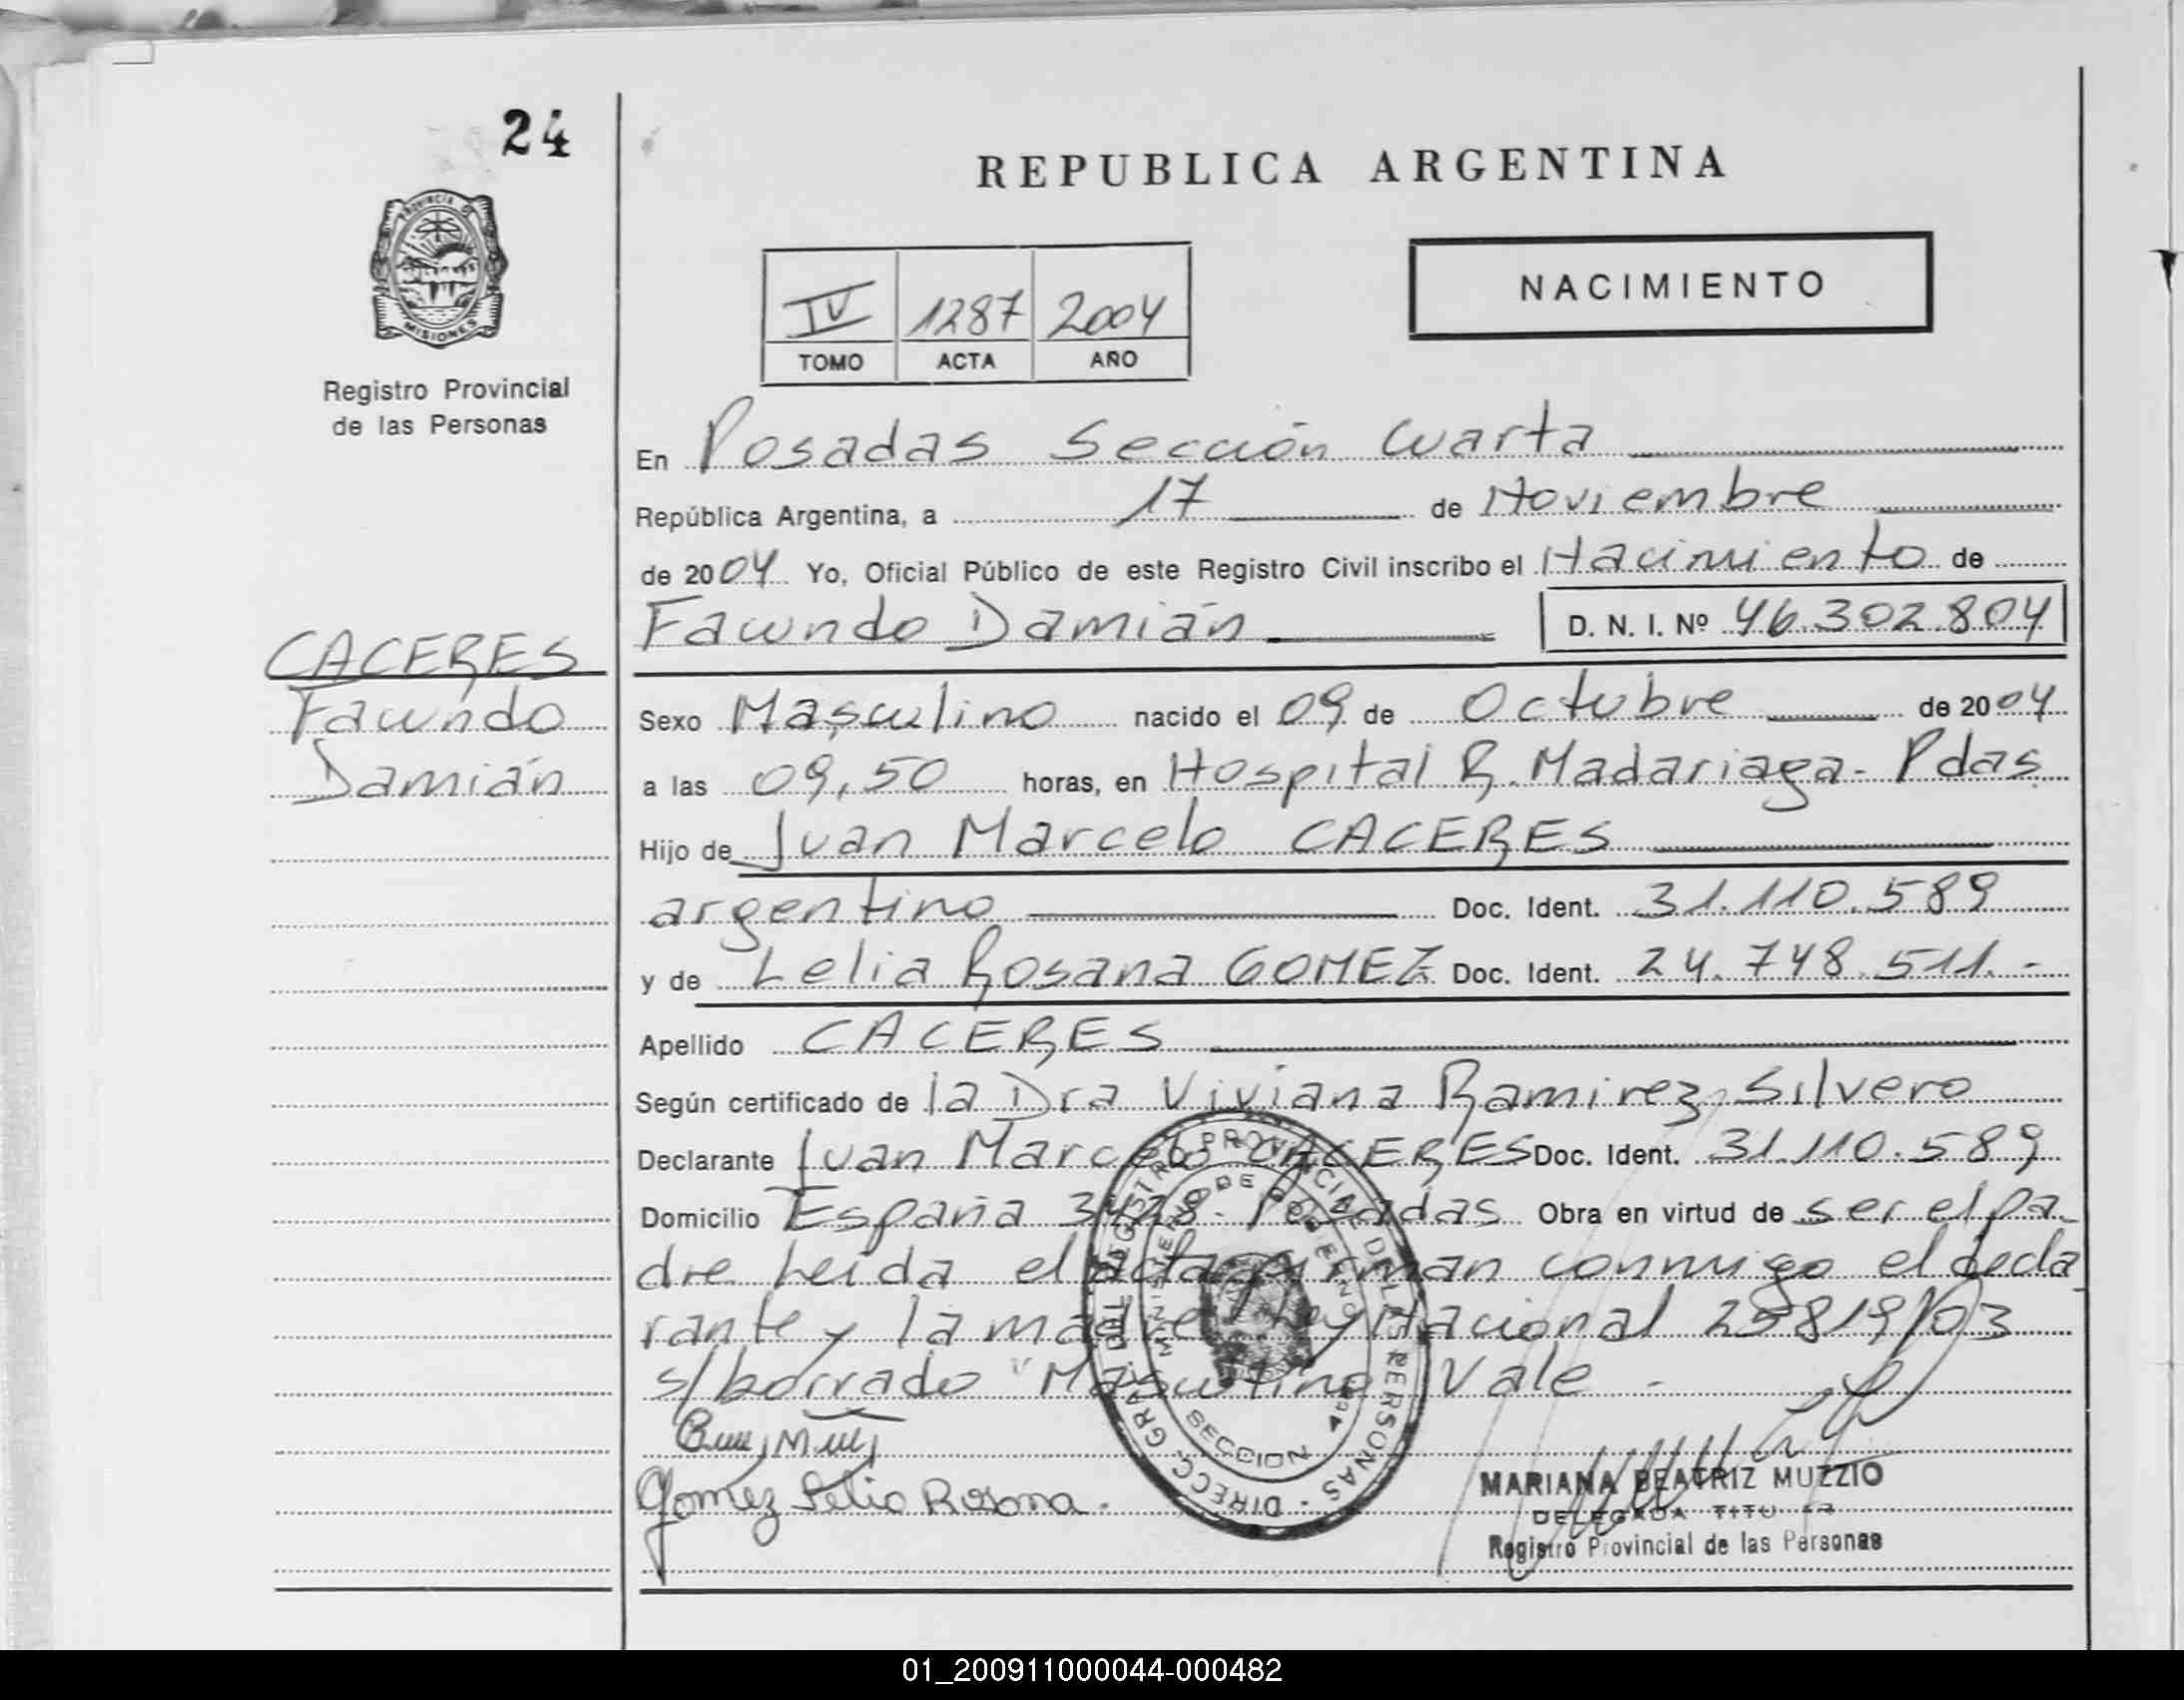 24
REPUBLICA ARGENTINA
PROVINCIA DE MISIONES
Registro Provincial
de las Personas
NACIMIENTO
IV 1287 2004
TOMO ACTA AÑO
En Posadas Sección Cuarta
República Argentina, a 17 de Noviembre
de 2004 Yo, Oficial Público de este Registro Civil inscribo el Nacimiento de
Facundo Damián D. N. I. Nº 46.302.804
CACERES
Facundo
Damián
Sexo Masculino nacido el 09 de Octubre de 2004
a las 09,50 horas, en Hospital R. Madariaga - Pdas
Hijo de Juan Marcelo CACERES
argentino Doc. Ident. 31.110.589
y de Lelia Rosana GOMEZ Doc. Ident. 24.748.511.-
Apellido CACERES
Según certificado de la Dra Viviana Ramirez Silvero
Declarante Juan Marcelo CACERES Doc. Ident. 31.110.589
Domicilio España 3428 - Posadas Obra en virtud de ser el pa-
dre Leida el acta firman conmigo el decla
rante y la madre Ley Nacional 25819/03
s/borrado "Masculino" Vale -
Gomez Lelia Rosana.
DIRECC. GRAL. DEL REGISTRO PROVINCIAL DE LAS PERSONAS
MINISTERIO DE GOBIERNO
SECCION 4ta
MARIANA BEATRIZ MUZZIO
DELEGADA TITULAR
Registro Provincial de las Personas
01_200911000044-000482